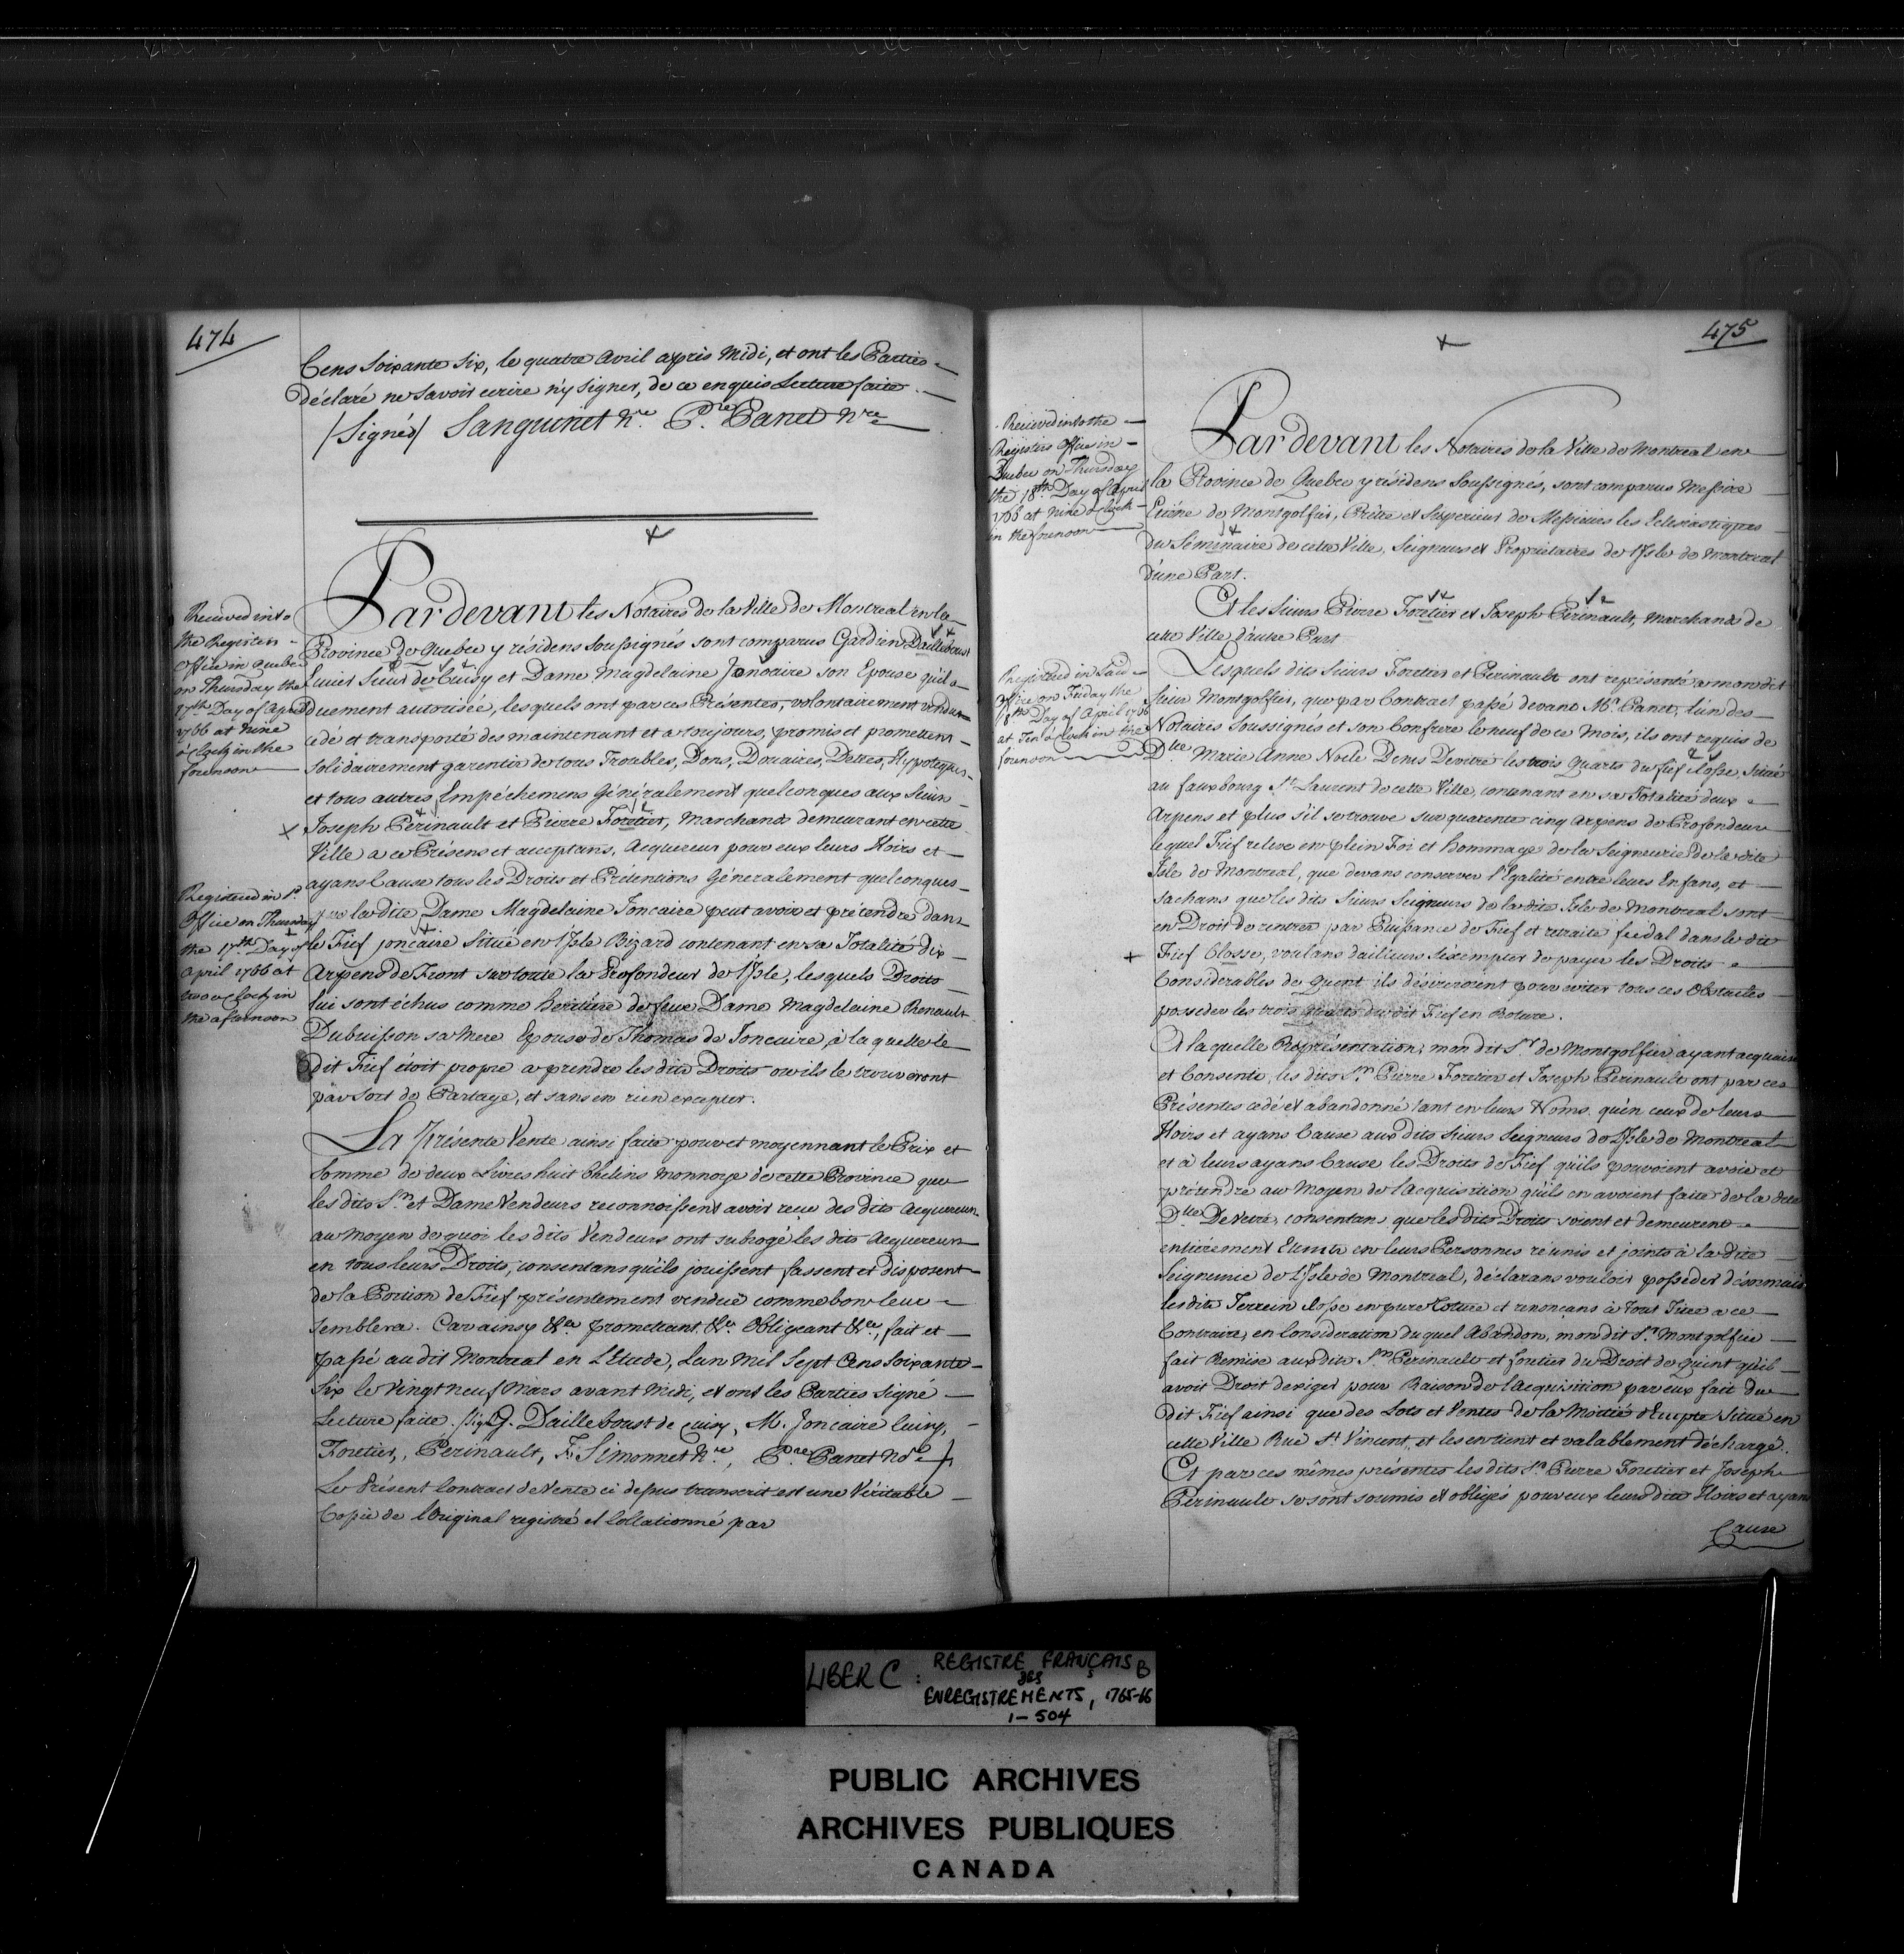 474
Cens Soixante Six, le quatre avril après Midi, et ont les Parties
déclaré ne Savoir ecrire n'y Signer, de ce enquis Lecture faite.
/Signés/ Sanguinet Nre. Pre. Panet Nre
Received into
the Registers
Office in Quebec
on Thursday the
17th Day of April
1766 at Nine
o'Clock in the
forenoon
Pardevant les Notaires de la Ville de Montreal en la
Province de Quebec y résidens Soussignés sont comparus Gardien Dailleboust
Ecuier Sieur de Cuisy et Dame Magdelaine Joncaire son Epouse qu'il a
duement autorisée, lesquels ont par ces Présentes, volontairement vendu
cedé et transporté des maintenant et a toujours, promis et promettent
Solidairement garentir de tous Troubles, Dons, Douaires, Dettes, Hypoteques
et tous autres Empêchemens Généralement quelconques aux Sieurs
Joseph Perinault et Pierre Foretier, Marchands demeurant en cette
Ville a ce Présens et acceptans, Acquereur pour eux leurs Hoirs et
ayans Cause tous les Droits et Prétentions Généralement quelconques
que la dite Dame Magdelaine Joncaire peut avoir et prétendre dans
le Fief joncaire Situé en l'Isle Bizard contenant en sa Totalité dix
Arpens de Front sur toute la Profondeur de l'Isle, lesquels Droits
lui sont échus comme heritiere de feue Dame Magdelaine Renault
Dubuisson sa Mere Epouse de Thomas de Joncaire, à laquelle le
dit Fief étoit propre a prendre les dits Droits ou ils se trouveront
par Sort de Partage, et sans en rien excepter.
Registered in Sd.
Office on Thursday
the 17th Day of
April 1766 at
two o'Clock in
the afternoon
La Présente Vente ainsi faite pour et moyennant le Prix et
Somme de deux Livres huit Chelins monnoye de cette Province que
les dits Srs. et Dame Vendeurs reconnoissent avoir reçu des dits Acquereurs
au Moyen de quoi les dits Vendeurs ont subrogé les dits Acquereurs
en tous leurs Droits, consentans qu'ils jouissent fassent et disposent
de la Portion de Fief présentement vendüe comme bon leur
Semblera. Car ainsy &ca. promettant &ca. Obligeant &ca, fait et
passé au dit Montreal en L'Etude, L'an Mil Sept Cens Soixante
Six le Vingt neuf Mars avant Midi, et ont les Parties Signé
Lecture faite. Signé G. Dailleboust de Cuisy, M. Joncaire Cuisy,
Foretier, Perinault, F. Simonnet Nre., Pre. Panet Nore
Le Présent Contract de Vente ci dessus transcrit est une Véritable
Copie de l'Original registré et Collationné par
475
Received into the
Registers Office in
Quebec on Thursday
the 18th Day of April
1766 at Nine o'Clock
in the forenoon
Pardevant les Notaires de la Ville de Montreal en
la Province de Quebec y résidens Soussignés, sont comparus Messire
Etiéne de Montgolfier, Prêtre et Superieur de Messieurs les Eclesiastiques
du Séminaire de cette Ville, Seigneurs et Proprietaires de l'Isle de Montreal
d'une Part.
Et les Sieurs Pierre Foretier et Joseph Perinault, Marchands de
cette Ville d'autre Part
Registered in Said
Office on Friday the
18th Day of April 1766
at Ten o'Clock in the
forenoon
Lesquels dits Sieurs Foretier et Perinault ont représenté a mon dit
Sieur Montgolfier, que par Contract passé devant Me. Panet, l'un des
Notaires Soussignés et son Confrere le neuf de ce Mois, ils ont requis de
Dlle. Marie Anne Noele Denis Devitré les trois Quarts du Fief Closse, Situé
au fauxbourg St. Laurent de cette Ville, contenant en sa Totalité deux
Arpens et plus s'il se trouve sur quarente cinq Arpens de Profondeur
lequel Fief releve en plein Foi et hommage de la Seigneurie de la dite
Isle de Montreal, que devans conserver l'Egalité entre leurs Enfans, et
sachans que les dits Sieurs Seigneurs de la dite Isle de Montreal sont
en Droit de rentrer par Puissance de Fief et retraite feodal dans le dit
Fief Closse, voulans dailieurs s'exempter de payer les Droits
Considerables de Quent ils désireroient pour eviter tous ces Obstacles
posseder les trois Quarts du dit Fief en Roture.
A laquelle Représentation, mon dit Sr. de Montgolfier ayant acquiessé
et Consenti, les dits Srs. Pierre Foretier et Joseph Perinault ont par ces
Présentes cedé et abandonné tant en leurs Noms qu'en ceux de leurs
Hoirs et ayans Cause aux dits Sieurs Seigneurs de L'Isle de Montreal
et à leurs ayans Cause les Droits de Fief qu'ils pouvoient avoir et
prétendre au Moyen de l'Acquisition qu'ils en avoient faite de la dite
Dlle. Devitré, consentans que les dits Droits soient et demeurent
entiérement Eteints en leurs Personnes réunis et joints à la dite
Seigneurie de L'Isle de Montreal, déclarans vouloir posseder désormais
les dits Terrein Closse en pure Roture et renonçans à tout Titre a ce
Contraire, en Consideration duquel Abandon, mon dit Sr. Montgolfier
fait Remise aux dits Srs. Perinault et foretier du Droit de Quint qu'il
avoit Droit dexiger pour Raison de l'Acquisition par eux fait du
dit Fief ainsi que des Lots et Ventes de la Moitié d'Emplt. Situé en
cette Ville Rue St. Vincent, et les en tient et valablement déchargé.
Et par ces mêmes présentes les dits Srs. Pierre Foretier et Joseph
Perinault se sont soumis et obligés pour eux leurs dits Hoirs et ayans
Cause
LIBER C : REGISTRE FRANÇAIS B
des
ENREGISTREMENTS, 1765-66
1-504
PUBLIC ARCHIVES
ARCHIVES PUBLIQUES
CANADA